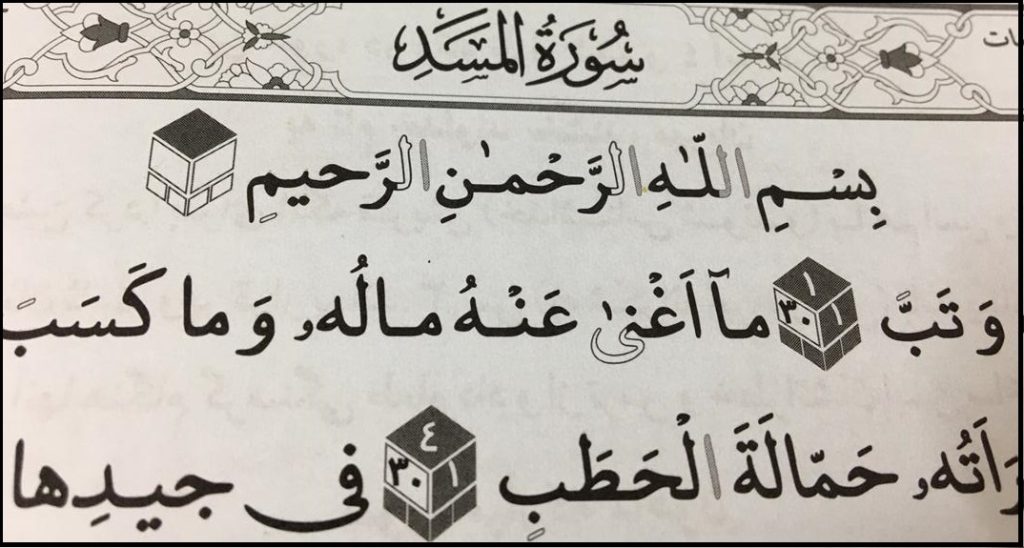 سُورَةُ المَسَدِ
بِسْمِ اللّٰهِ الرَّحْمٰنِ الرَّحيمِ
وَ تَبَّ ١ ٣٠ ١ مآ اَغْنىٰ عَنْهُ مالُهُۥ وَ ما كَسَبَ
حَمّالَةَ الْحَطَبِ ٤ ٣٠ ١ فى جيدِها